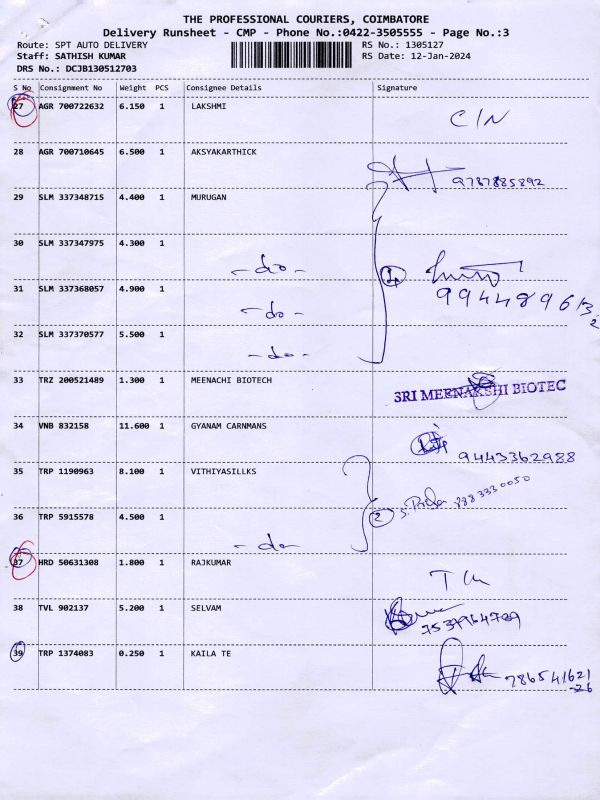 THE PROFESSIONAL COURIERS, COIMBATORE
Delivery Runsheet - CMP - Phone No.:0422-3505555 - Page No.:3
Route: SPT AUTO DELIVERY RS No.: 1305127
Staff: SATHISH KUMAR RS Date: 12-Jan-2024
DRS No.: DCJB130512703
S No Consignment No Weight PCS Consignee Details Signature
27 AGR 700722632 6.150 1 LAKSHMI C/N
28 AGR 700710645 6.500 1 AKSYAKARTHICK
9787885892
29 SLM 337348715 4.400 1 MURUGAN
30 SLM 337347975 4.300 1
-do- 4
31 SLM 337368057 4.900 1 9944896132
-do-
32 SLM 337370577 5.500 1
-do-
33 TRZ 200521489 1.300 1 MEENACHI BIOTECH
SRI MEENAKSHI BIOTEC
34 VNB 832158 11.600 1 GYANAM CARNMANS
9443362988
35 TRP 1190963 8.100 1 VITHIYASILLKS
8883330050
36 TRP 5915578 4.500 1 2
-do-
37 HRD 50631308 1.800 1 RAJKUMAR
38 TVL 902137 5.200 1 SELVAM
39 TRP 1374083 0.250 1 KAILA TE
786541621
26